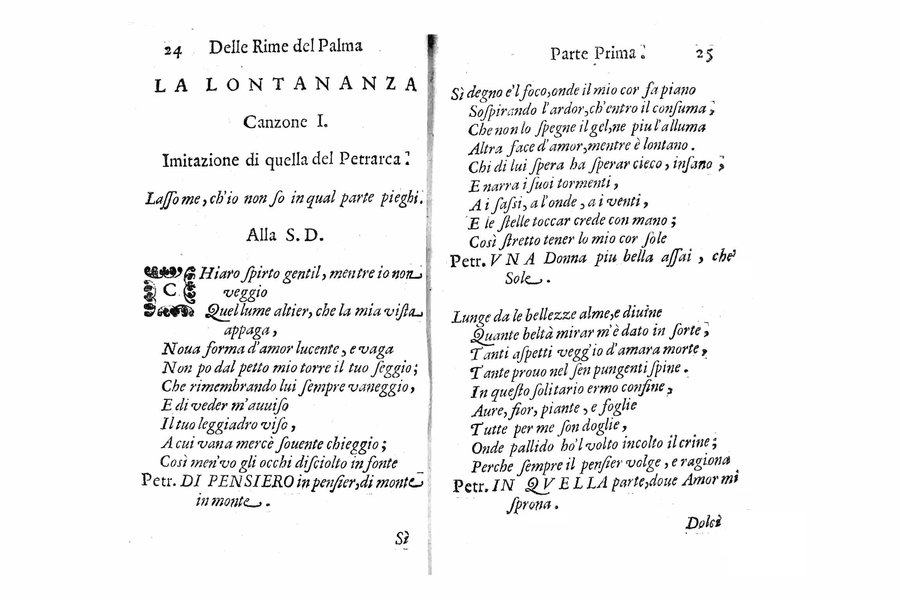 24 Delle Rime del Palma
LA LONTANANZA
Canzone I.
Imitazione di quella del Petrarca.
Laſſo me, ch'io non ſo in qual parte pieghi.
Alla S. D.
CHiaro ſpirto gentil, mentre io non
veggio
Quel lume altier, che la mia viſta
appaga,
Noua forma d'amor lucente, e vaga
Non po dal petto mio torre il tuo ſeggio;
Che rimembrando lui ſempre vaneggio,
E di veder m'auuiſo
Il tuo leggiadro viſo,
A cui vana mercè ſouente chieggio;
Così men'vo gli occhi diſciolto in fonte
Petr. DI PENSIERO in penſier, di monte
in monte.
Sì
Parte Prima. 25
Sì degno e'l foco, onde il mio cor fa piano
Soſpirando l'ardor, ch'entro il conſuma;
Che non lo ſpegne il gel, ne piu l'alluma
Altra face d'amor, mentre è lontano.
Chi di lui ſpera ha ſperar cieco, inſano;
E narra i ſuoi tormenti,
A i ſaſsi, a l'onde, a i venti,
E le ſtelle toccar crede con mano;
Così ſtretto tener lo mio cor ſole
Petr. VNA Donna piu bella aſſai, che
Sole.
Lunge da le bellezze alme, e diuine
Quante beltà mirar m'è dato in ſorte,
Tanti aſpetti vegg'io d'amara morte,
Tante prouo nel ſen pungenti ſpine.
In queſto ſolitario ermo confine,
Aure, fior, piante, e foglie
Tutte per me ſon doglie,
Onde pallido ho'l volto incolto il crine;
Perche ſempre il penſier volge, e ragiona
Petr. IN QVELLA parte, doue Amor mi
ſprona.
Dolci